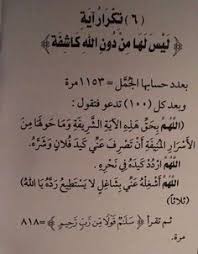 (٦) تكرار آية
﴿ لَيْسَ لَهَا مِنْ دُونِ اللَّهِ كَاشِفَةٌ ﴾
بعدد حسابها الجُمَّل = ١١٥٣ مرة
وبعد كل (١٠٠) تدعو فتقول :
(اللَّهُمَّ بِحَقِّ هَذِهِ الآيَةِ الشَّرِيفَةِ وَمَا حَوَتْهَا مِنَ
الأَسْرَارِ الْمُنِيفَةِ أَنْ تَصْرِفَ عَنِّي كَيْدَ فُلَانٍ وَشَرَّهُ.
اللَّهُمَّ ارْدُدْ كَيْدَهُ فِي نَحْرِهِ.
اللَّهُمَّ أَشْغِلْهُ عَنِّي بِشَاغِلٍ لَا يَسْتَطِيعُ رَدَّهُ يَا اللَّهُ)
(ثلاثاً)
ثم تقرأ ﴿ سَلَامٌ قَوْلًا مِنْ رَبٍّ رَحِيمٍ ﴾ = ٨١٨
مرة.